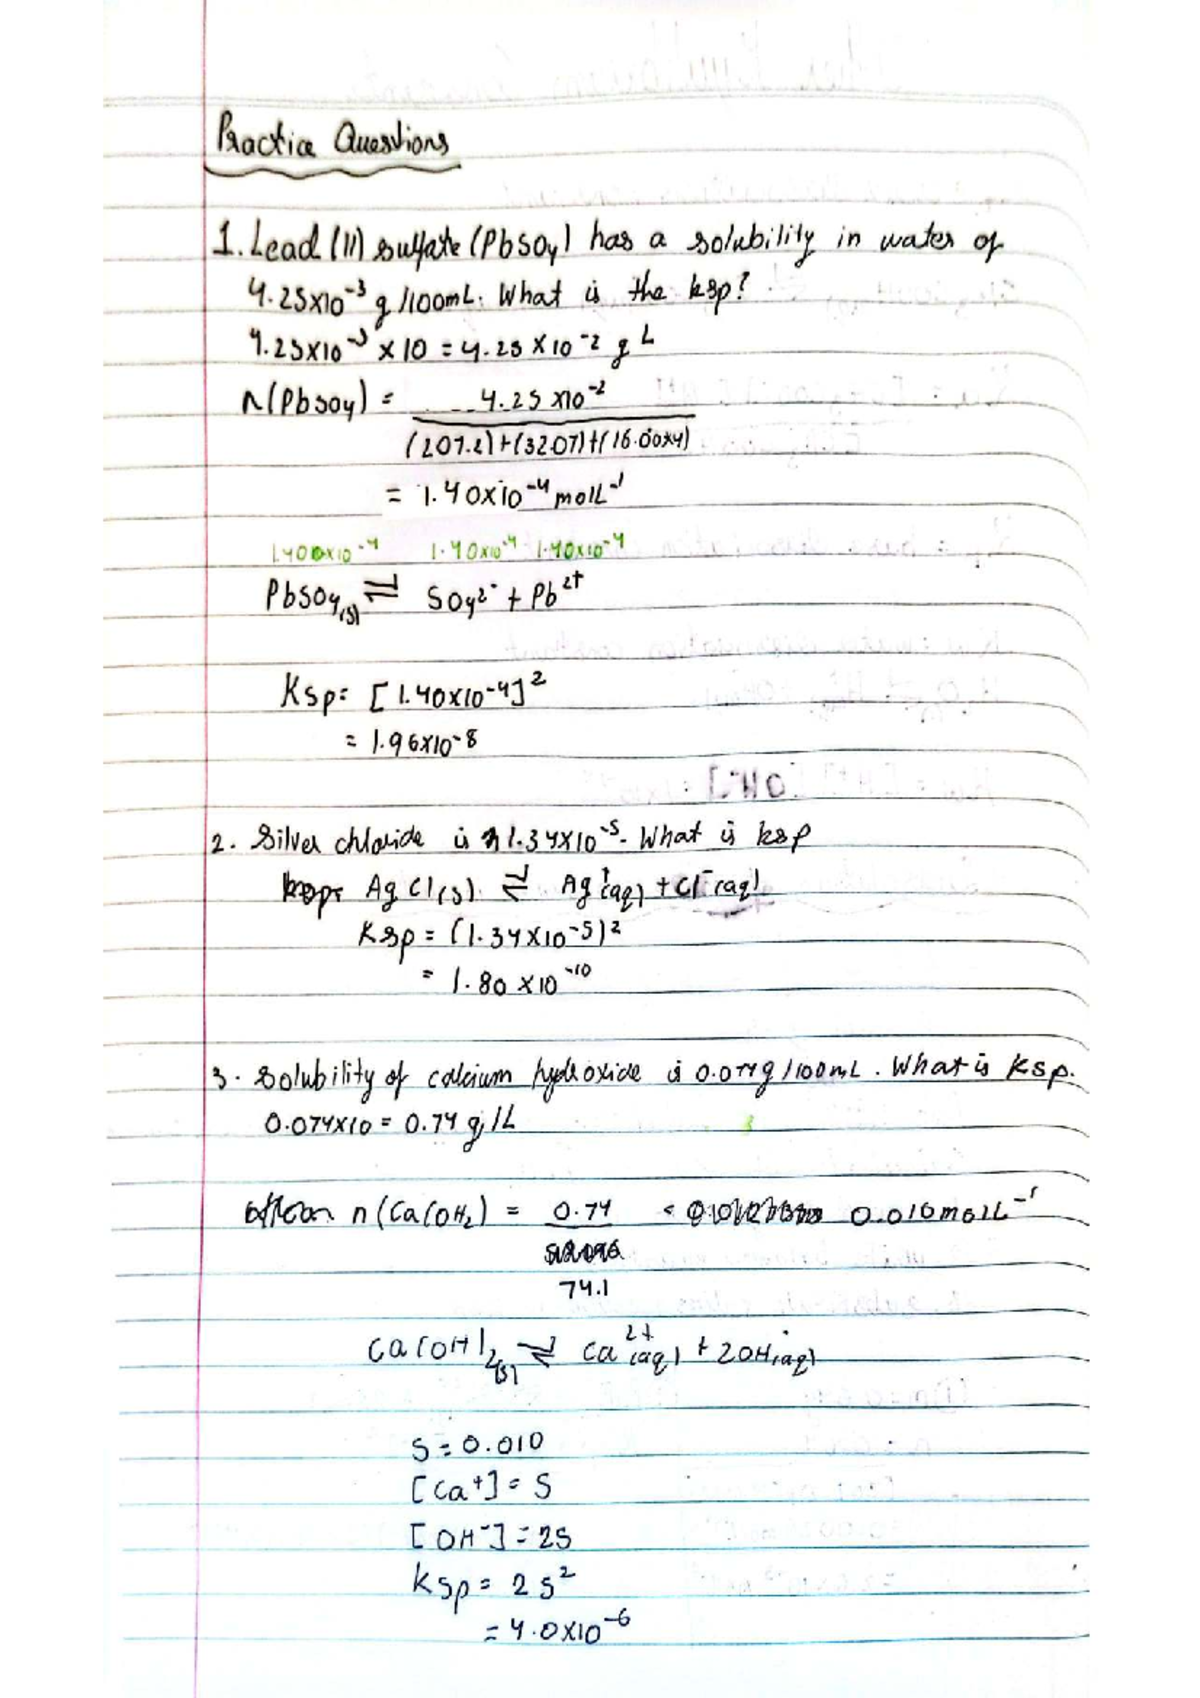 Practice Questions
1. Lead (II) sulfate (PbSO4) has a solubility in water of
4.25x10-3 g/100mL. What is the ksp?
4.25x10-3 x 10 = 4.25 x 10-2 g L
n(PbSO4) = 4.25 x10-2
(207.2)+(32.07)+(16.00x4)
= 1.40x10-4 molL-1
1.40x10-4 1.40x10-4 1.40x10-4
PbSO4(s) ⇌ SO42- + Pb2+
Ksp= [1.40x10-4]2
= 1.96x10-8
2. Silver chloride is 1.34x10-5. What is ksp
AgCl(s) ⇌ Ag+(aq) + Cl-(aq)
Ksp = (1.34x10-5)2
= 1.80 x10-10
3. Solubility of calcium hydroxide is 0.074g/100mL. What is Ksp.
0.074x10 = 0.74 g/L
n(Ca(OH2) = 0.74 = 0.010molL-1
74.1
Ca(OH)2(s) ⇌ Ca2+(aq) + 2OH-(aq)
S=0.010
[Ca+]= S
[OH-]=2S
Ksp= 2s2
= 4.0x10-6